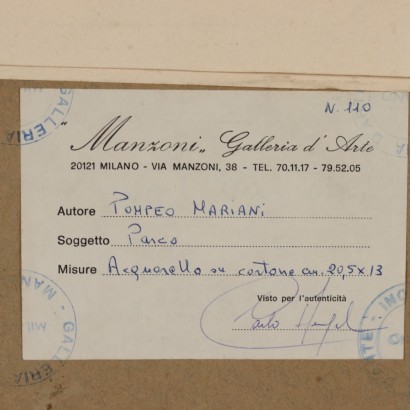 N. 110
"Manzoni„ Galleria d'Arte
20121 MILANO - VIA MANZONI, 38 - TEL. 70.11.17 - 79.52.05
Autore POMPEO MARIANI
Soggetto Parco
Misure Acquarello su cartone cm. 20,5 x 13
Visto per l'autenticità
GALLERIA
GALLERIA
MAN
GALLERIA